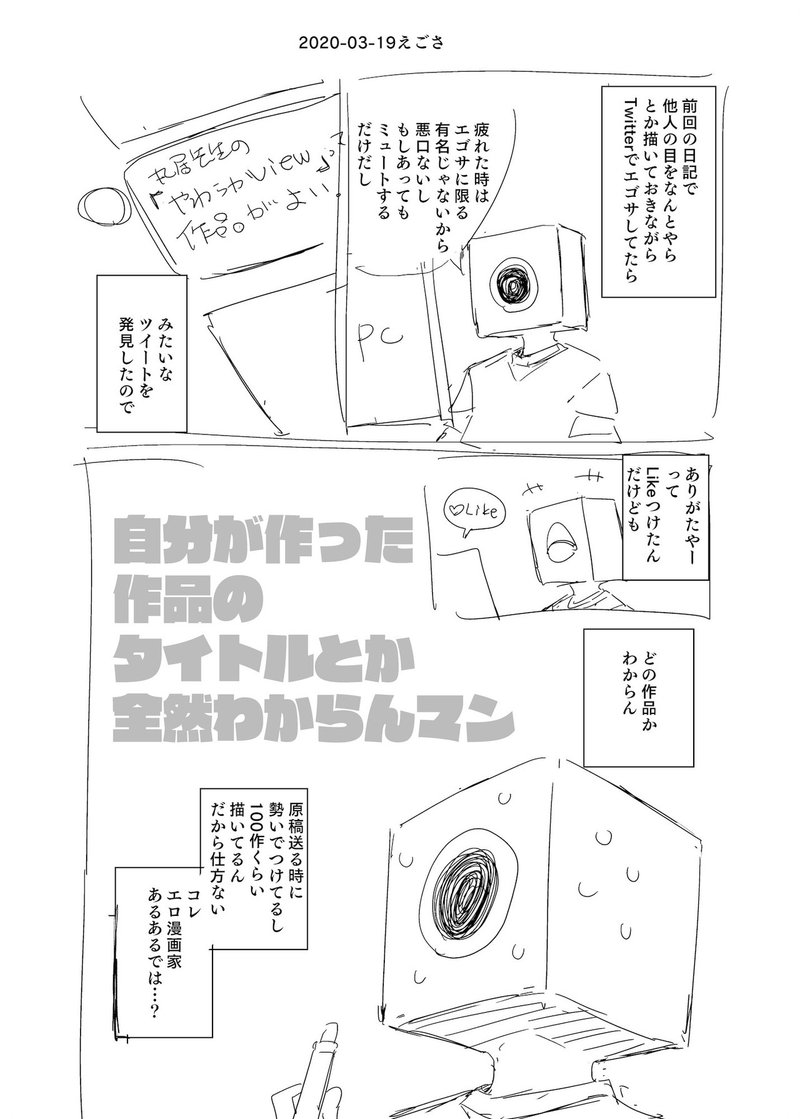 2020-03-19えごさ
前回の日記で
他人の目をなんとやら
とか描いておきながら
Twitterでエゴサしてたら
疲れた時は
エゴサに限る
有名じゃないから
悪口ないし
もしあっても
ミュートする
だけだし
PC
丸居先生の
『やわらかview』って
作品。がよい
みたいな
ツイートを
発見したので
ありがたやー
って
Likeつけたん
だけども
♡Like
どの作品か
わからん
自分が作った
作品の
タイトルとか
全然わからんマン
原稿送る時に
勢いでつけてるし
100作くらい
描いてるん
だから仕方ない
コレ
エロ漫画家
あるあるでは…?